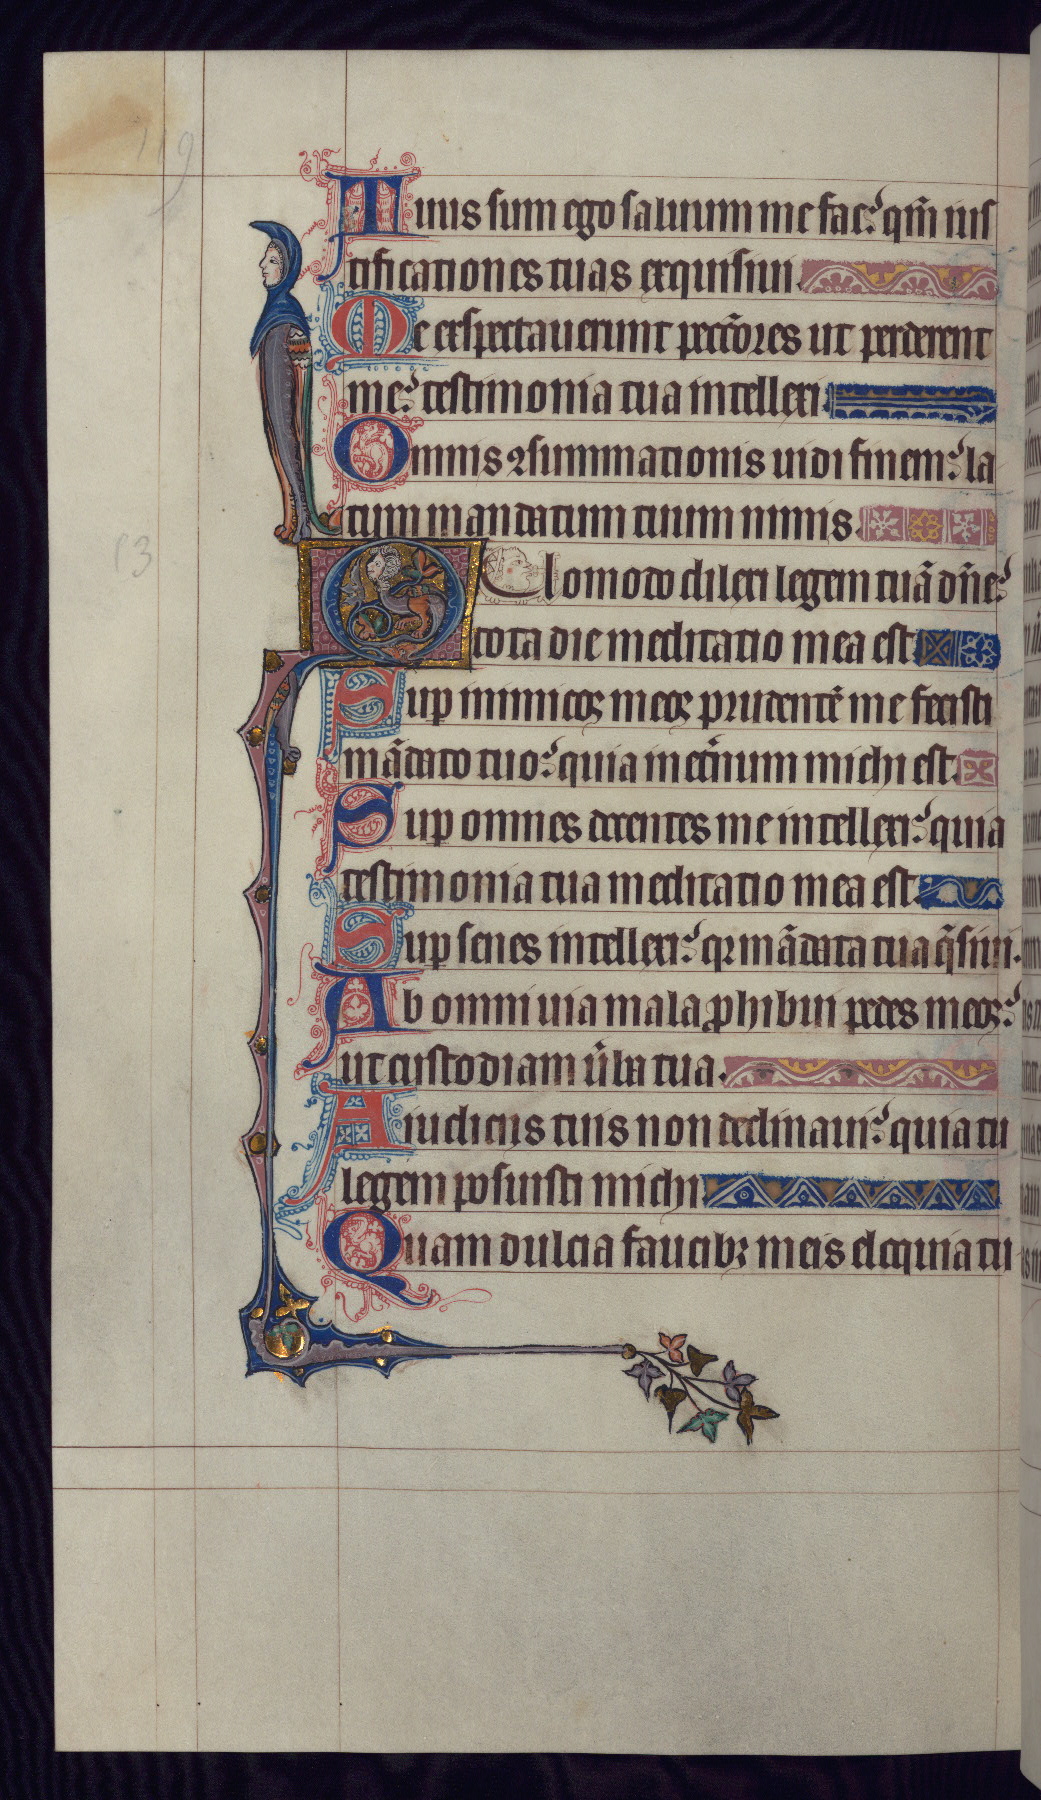 119
Tuus sum ego saluum me fac: qm̄ ius
tificationes tuas exquisiui.
Me exspectauerunt pecc̄ores ut perderent
me: testimonia tua intellexi.
Omnis ꝯsummationis uidi finem: la
tum mandatum tuum nimis.
Quomodo dilexi legem tuā dn̄e:
tota die meditatio mea est.
Sup inimicoꝝ meoꝝ prudentē me fecisti
mādato tuo: quia in et̄num michi est.
Sup omnes docentes me intellexi: quia
testimonia tua meditatio mea est.
Sup senes intellexi: qꝛ mādata tua q̄siui.
Ab omni uia mala ꝓhibui pedes meos:
ut custodiam ūba tua.
A iudiciis tuis non declinaui: quia tu
legem posuisti michi.
Quam dulcia faucibꝫ meis eloquia tu